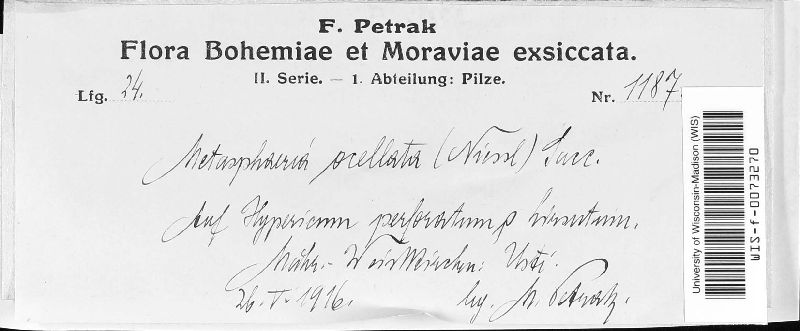 F. Petrak
Flora Bohemiae et Moraviae exsiccata.
II. Serie. — 1. Abteilung: Pilze.
Lfg. 24. Nr. 1187.
Metasphaeria ocellata (Niessl) Sacc.
Auf Hypericum perforatum, hirsutum.
Mähr.-Weisskirchen: Usti.
26. V. 1916. lg. Petrak.
University of Wisconsin-Madison (WIS)
WIS-f-0073270